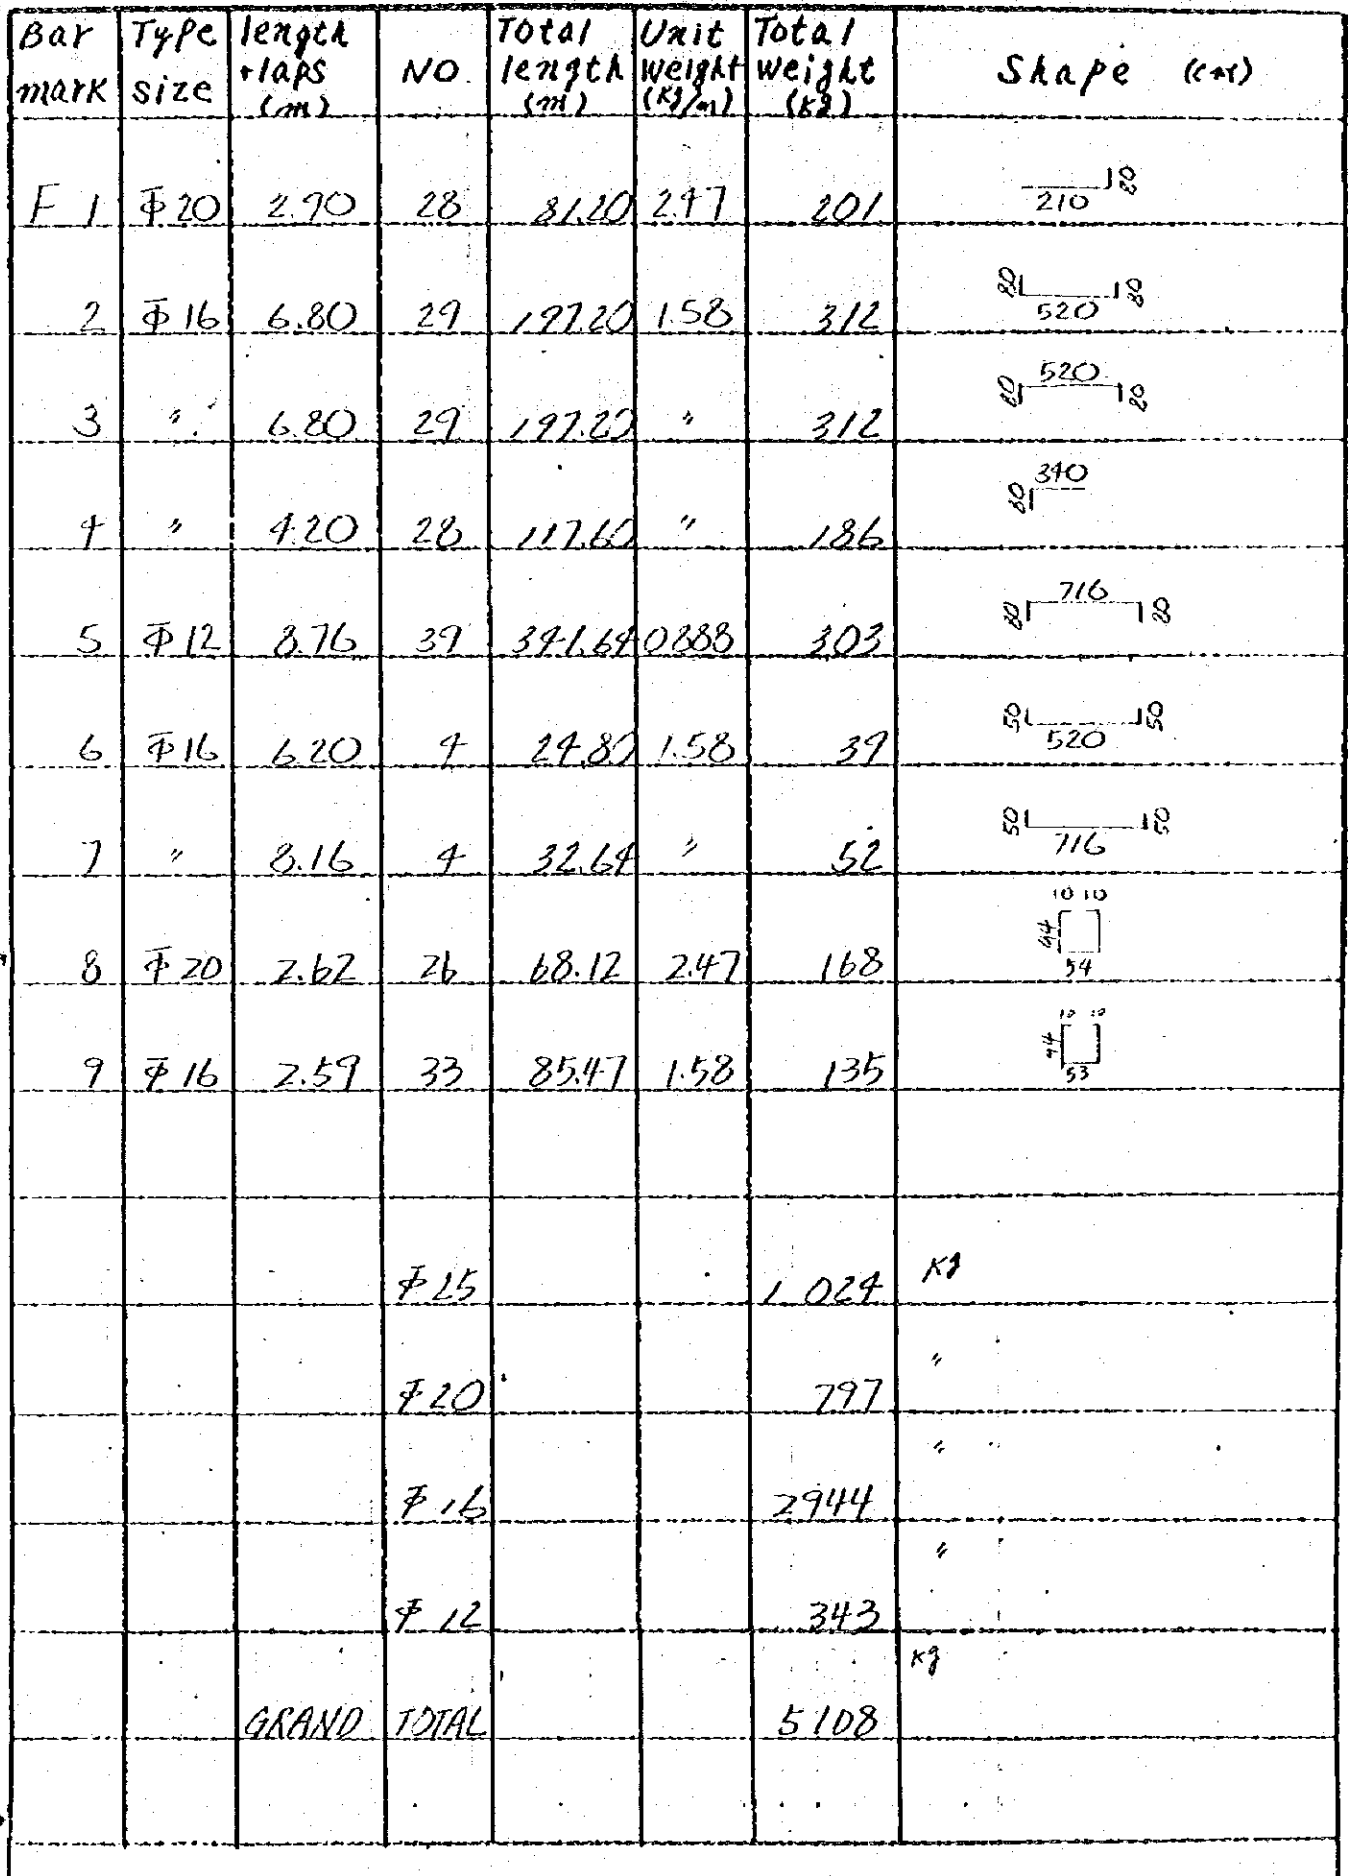 Bar mark Type size length +laps (m) NO. Total length (m) Unit weight (kg/m) Total weight (kg) Shape (cm)
F 1 Φ20 2.90 28 81.20 2.47 201 210 80
2 Φ16 6.80 29 197.20 1.58 312 80 520 80
3 〃 6.80 29 197.20 〃 312 80 520 80
4 〃 4.20 28 117.60 〃 186 80 340
5 Φ12 8.76 39 341.64 0888 303 80 716 80
6 Φ16 6.20 4 24.80 1.58 39 50 520 50
7 〃 8.16 4 32.64 〃 52 50 716 50
8 Φ20 2.62 26 68.12 2.47 168 10 10 94 54
9 Φ16 2.59 33 85.47 1.58 135 10 10 94 53
Φ25 1 024 kg
Φ20 797 〃
Φ16 2944 〃
Φ12 343 〃
GRAND TOTAL 5108 kg